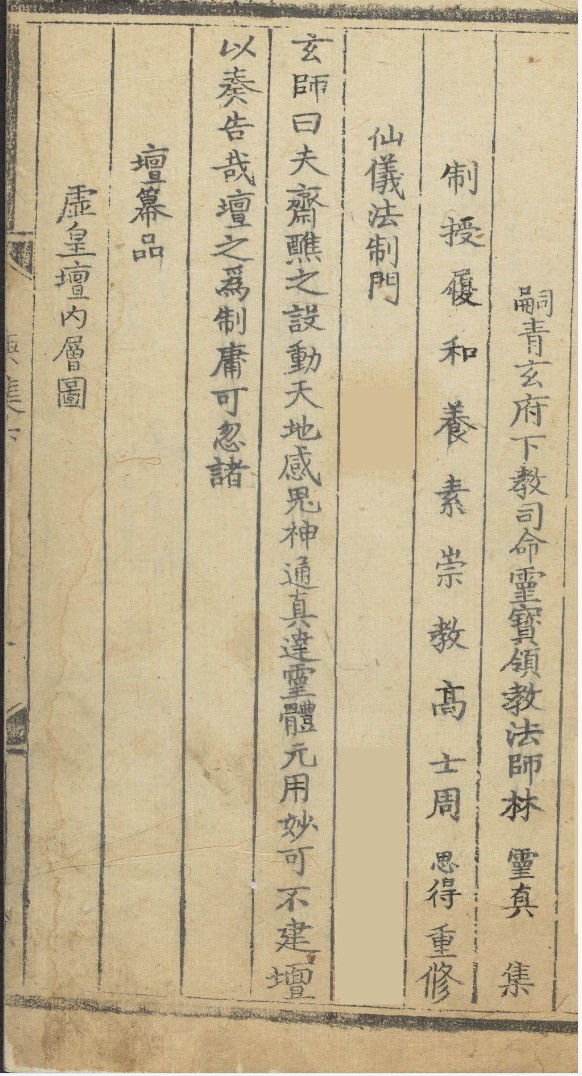 嗣青玄府下教司命靈寶領教法師林靈真集
制授履和養素崇教高士周思得重修
仙儀法制門
玄師曰夫齋醮之設動天地感鬼神通真達靈體元用妙可不建壇
以奏告哉壇之爲制庸可忽諸
壇幕品
虛皇壇內層圖